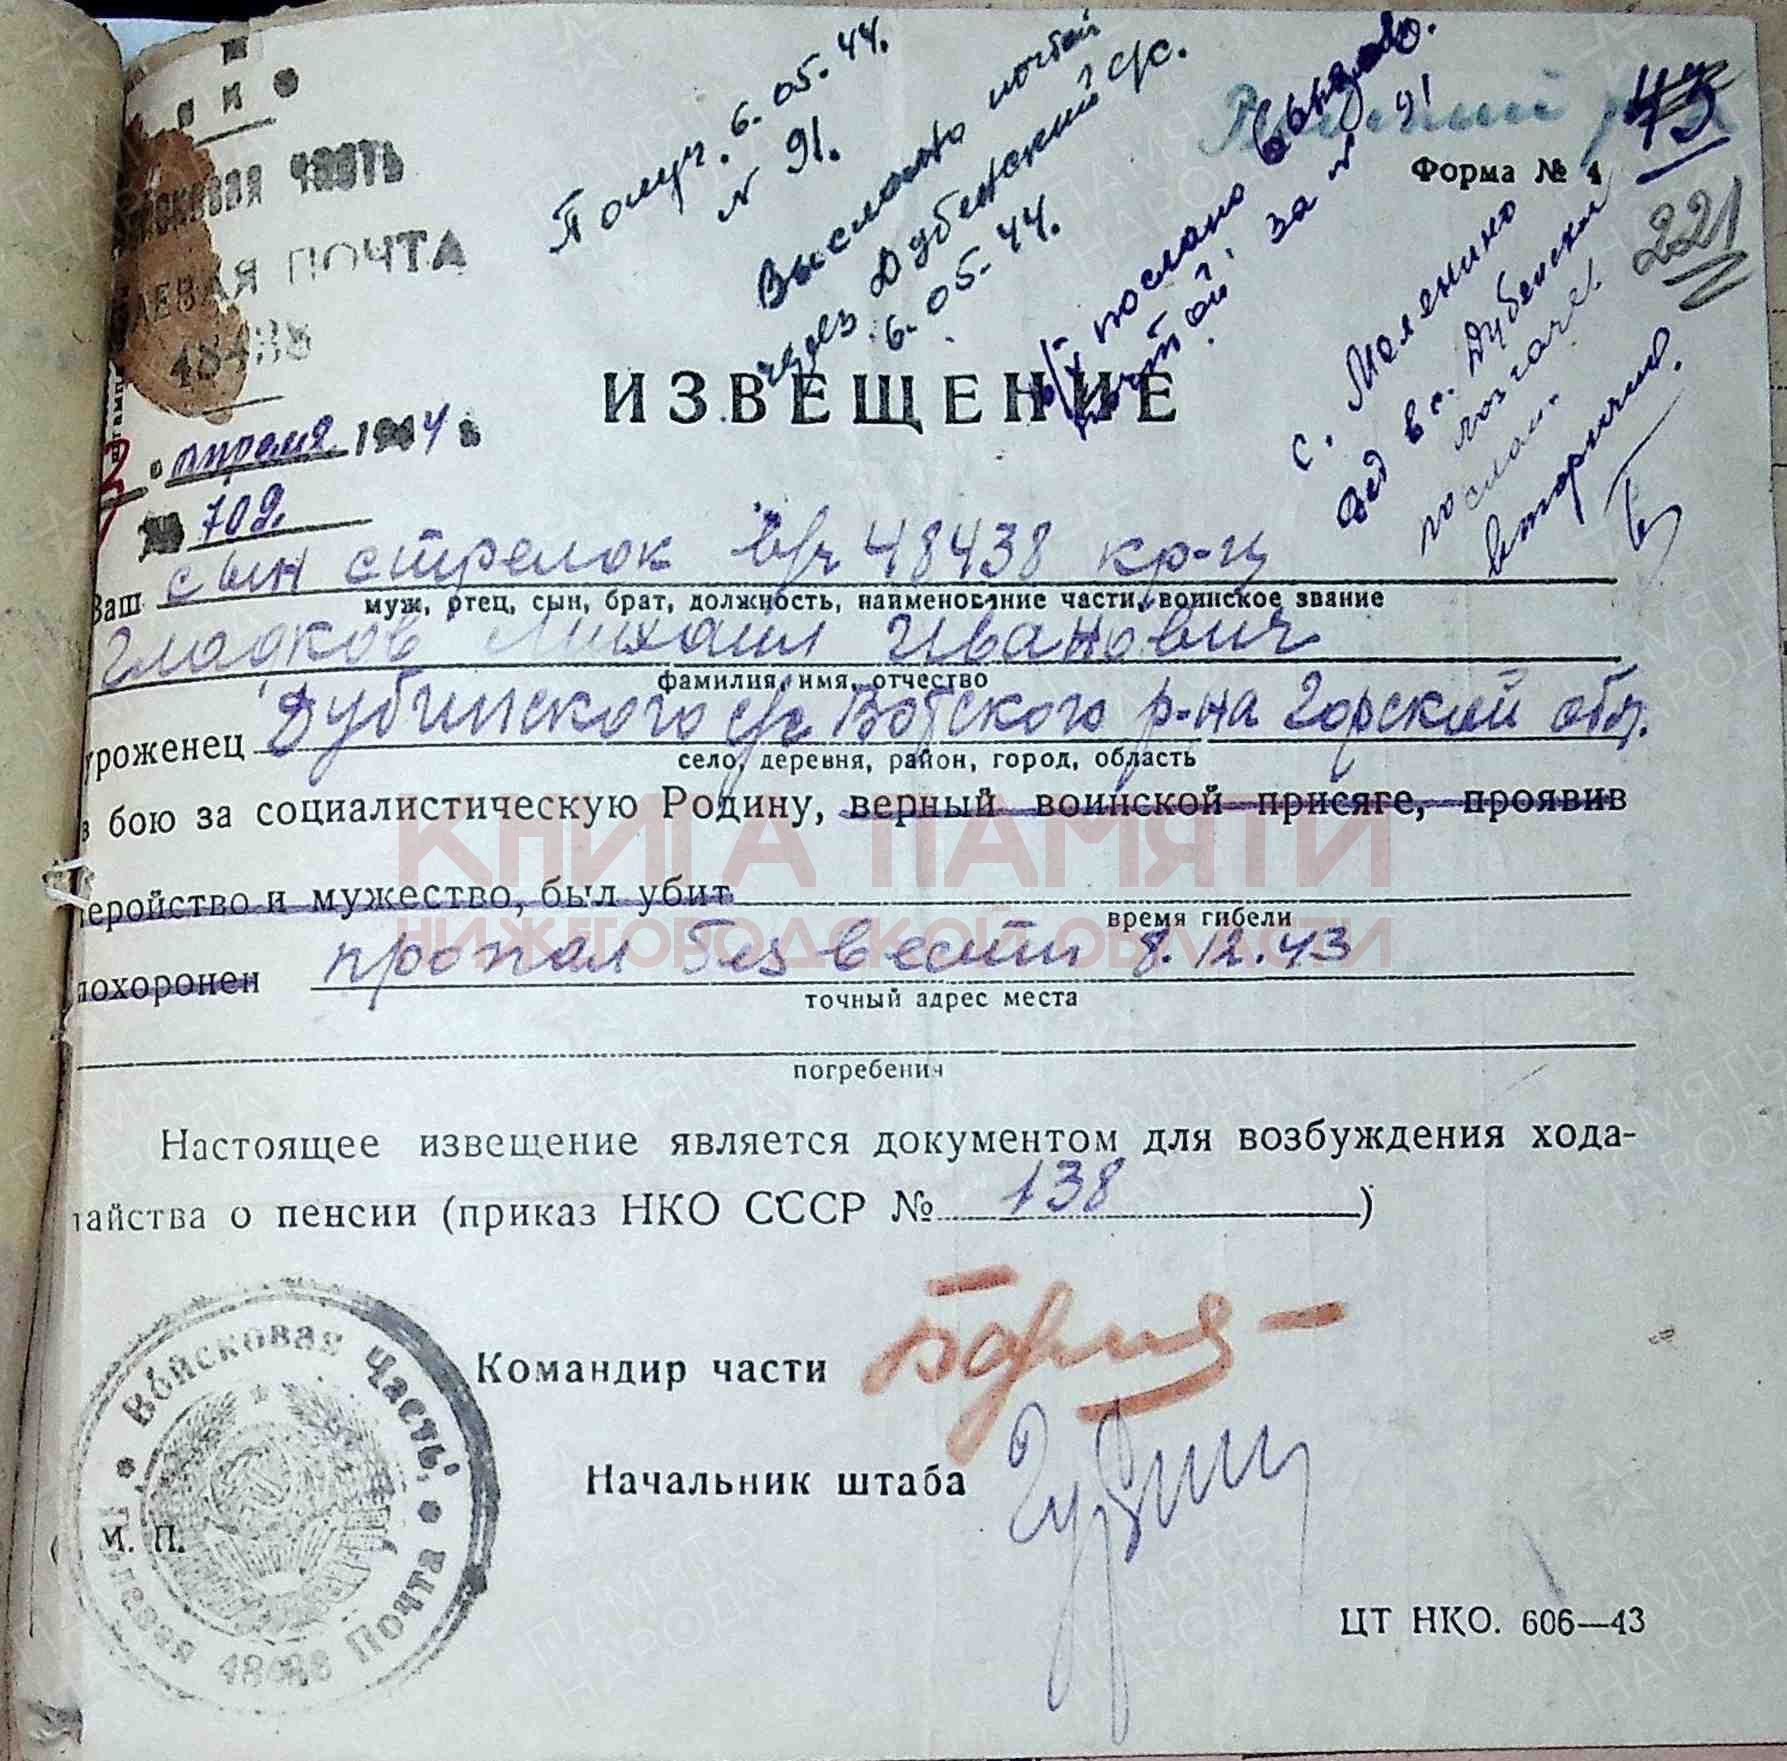 НКО
ВОЙСКОВАЯ ЧАСТЬ
ЛЕВАЯ ПОЧТА
48438
апреля 1944 г.
№ 709.
Получ. 6.05.44.
№ 91.
Выслано почтой
через Дубенский с/с.
6.05.44.
послано
почтой за № 91
43
Форма № 4
221
с. Маленино
вс. Дубенский
послан.
вторично.
ИЗВЕЩЕНИЕ
Ваш сын стрелок в/ч 48438 кр-ц
муж, отец, сын, брат, должность, наименование части, воинское звание
Гладков Михаил Иванович
фамилия, имя, отчество
уроженец Дубинского с/с Вотского р-на Горской обл.
село, деревня, район, город, область
в бою за социалистическую Родину, верный воинской присяге, проявив
геройство и мужество, был убит
время гибели
похоронен пропал без вести 8.12.43
точный адрес места
погребения
Настоящее извещение является документом для возбуждения хода-
тайства о пенсии (приказ НКО СССР № 138)
Командир части
Начальник штаба
М. П.
Войсковая Часть
Полевая Почта 48438
ЦТ НКО. 606—43
КНИГА ПАМЯТИ
НИЖЕГОРОДСКОЙ ОБЛАСТИ
ПАМЯТЬ НАРОДА